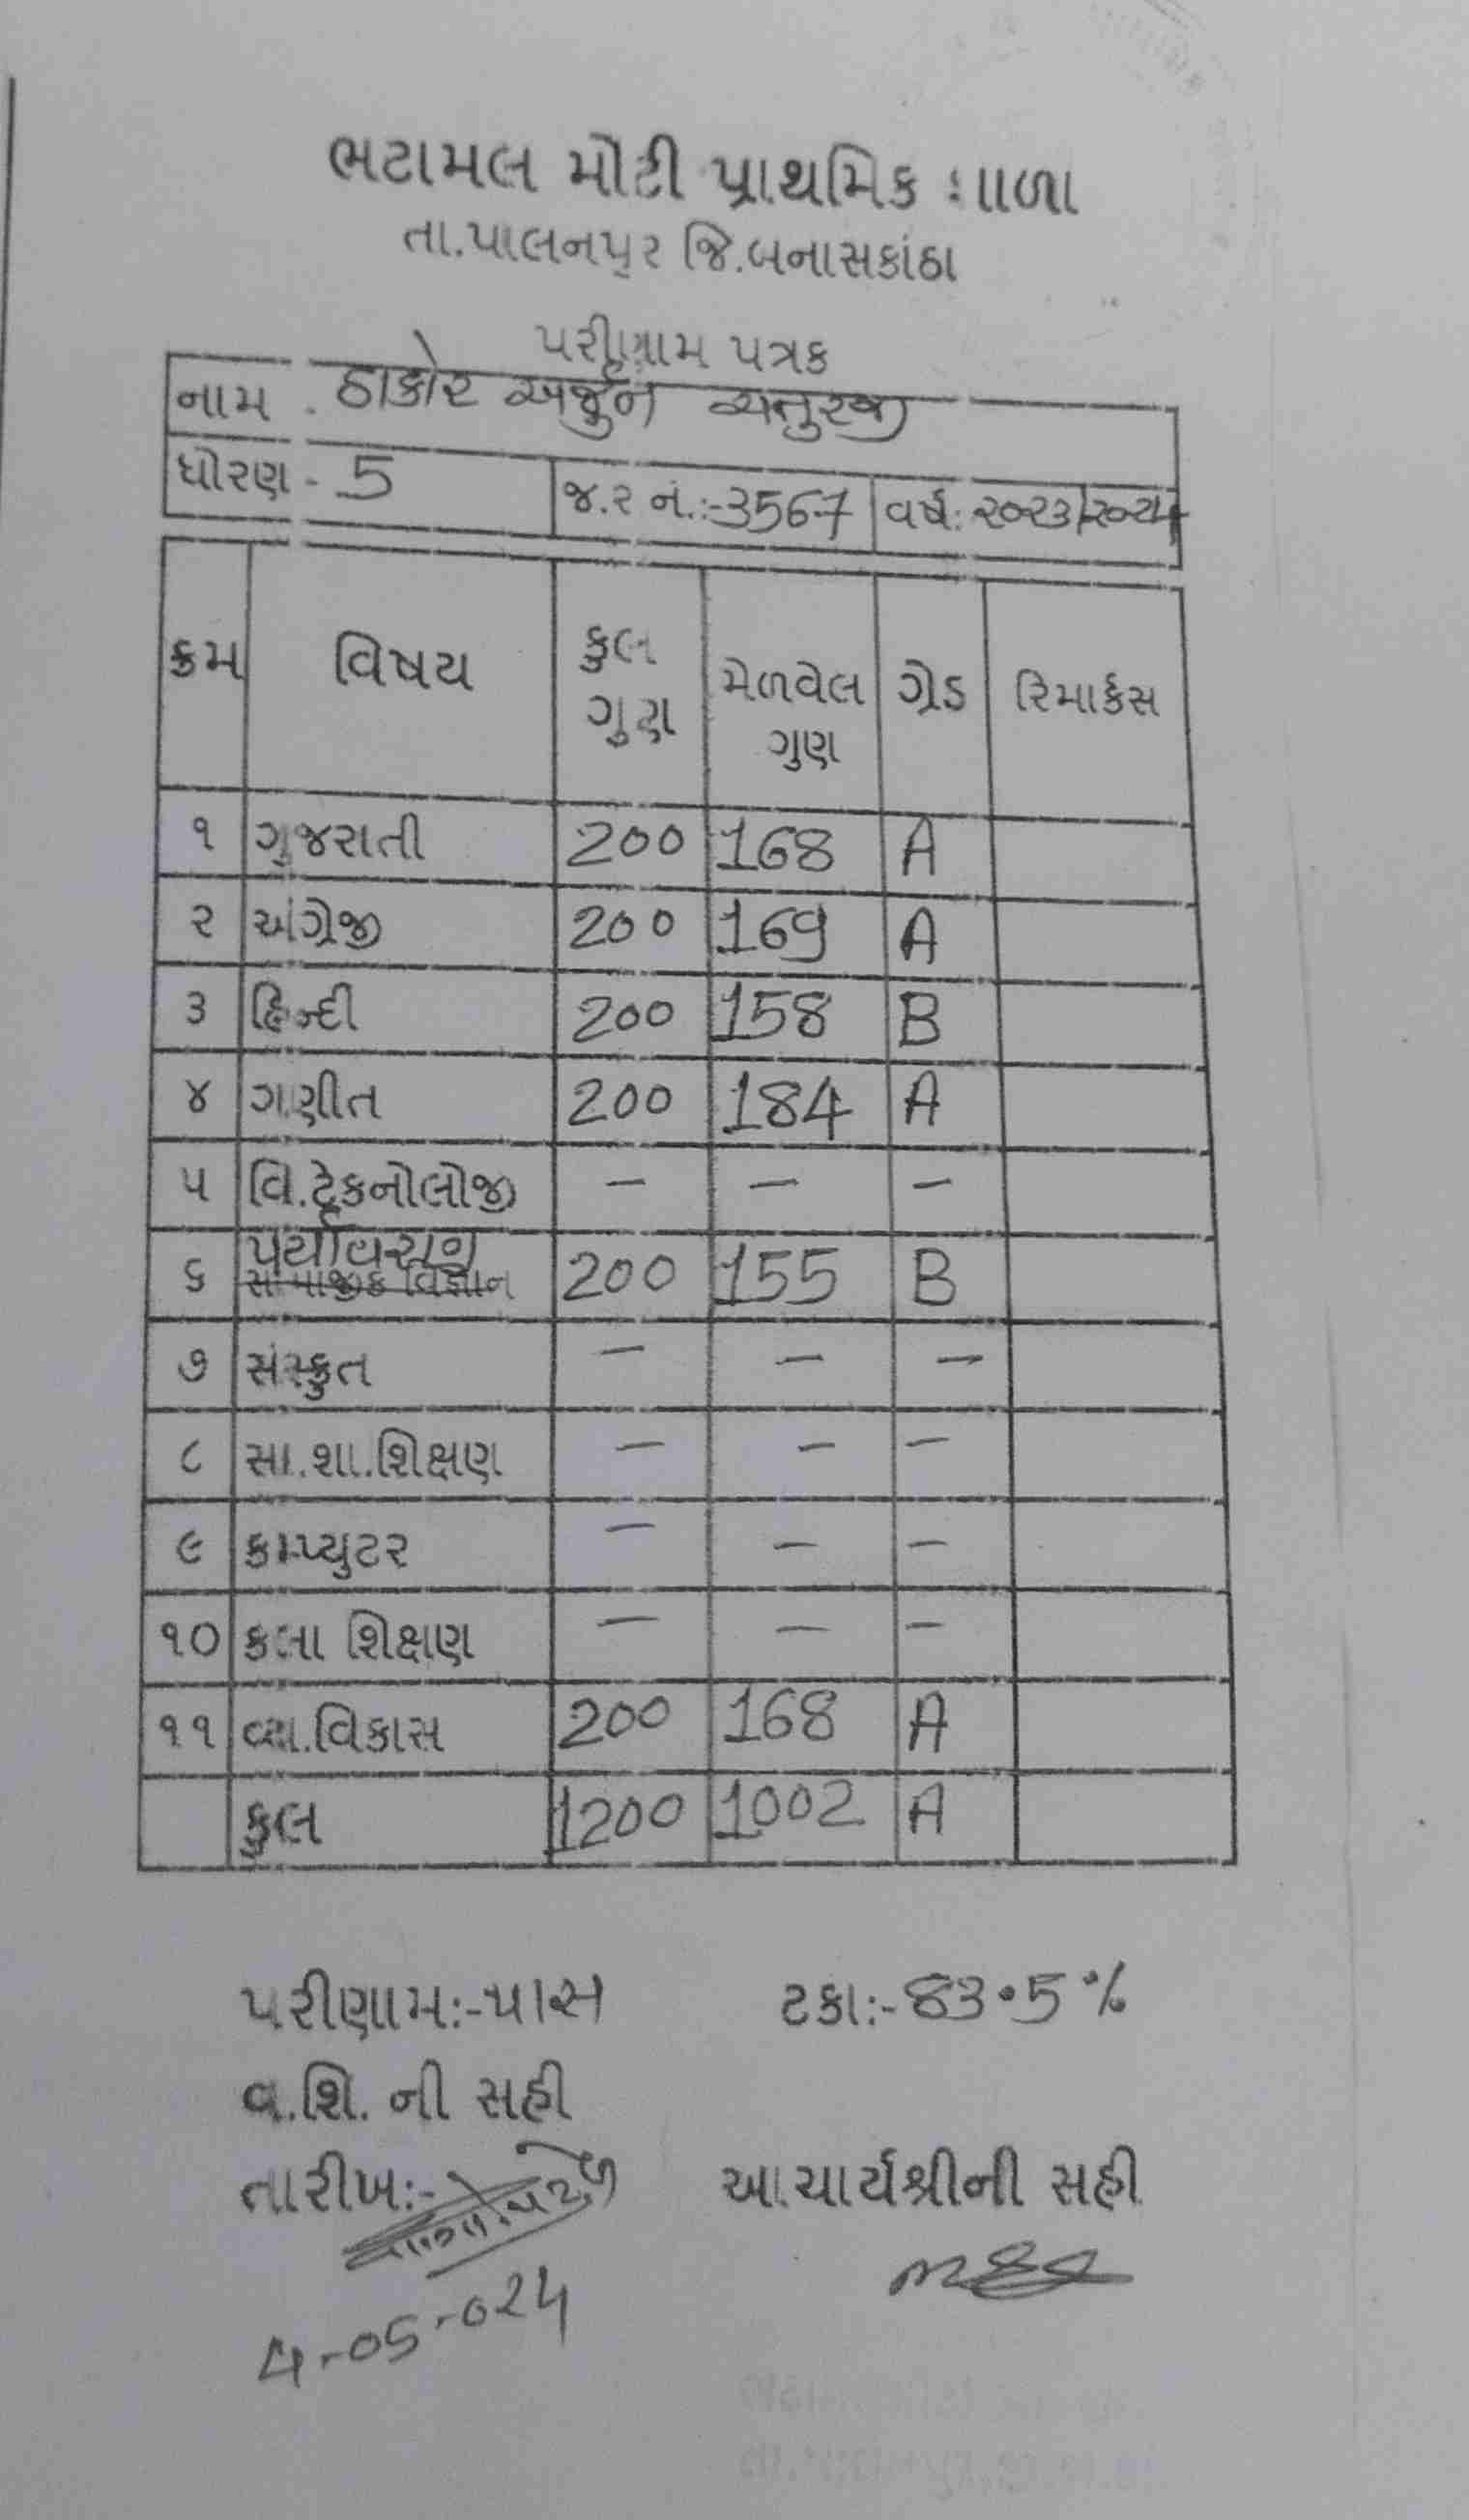 ભટામલ મોટી પ્રાથમિક શાળા
તા.પાલનપુર જિ.બનાસકાંઠા
પરીણામ પત્રક
નામ . ઠાકોર અર્જુન ચતુરજી
ધોરણ - 5 જ.ર નં.:-3567 વર્ષ: ૨૦૨૩/૨૦૨૪
ક્રમ વિષય કુલ ગુણ મેળવેલ ગુણ ગ્રેડ રિમાર્કસ
૧ ગુજરાતી 200 168 A
૨ અંગ્રેજી 200 169 A
૩ હિન્દી 200 158 B
૪ ગણીત 200 184 A
૫ વિ.ટેકનોલોજી - - -
૬ પર્યાવરણ સામાજીક વિજ્ઞાન 200 155 B
૭ સંસ્કૃત - - -
૮ સા.શા.શિક્ષણ - - -
૯ કમ્પ્યુટર - - -
૧૦ કલા શિક્ષણ - - -
૧૧ વ્યા.વિકાસ 200 168 A
કુલ 1200 1002 A
પરીણામ:-પાસ ટકા:-83.5%
વ.શિ. ની સહી
તારીખ:- આચાર્યશ્રીની સહી
4-05-024